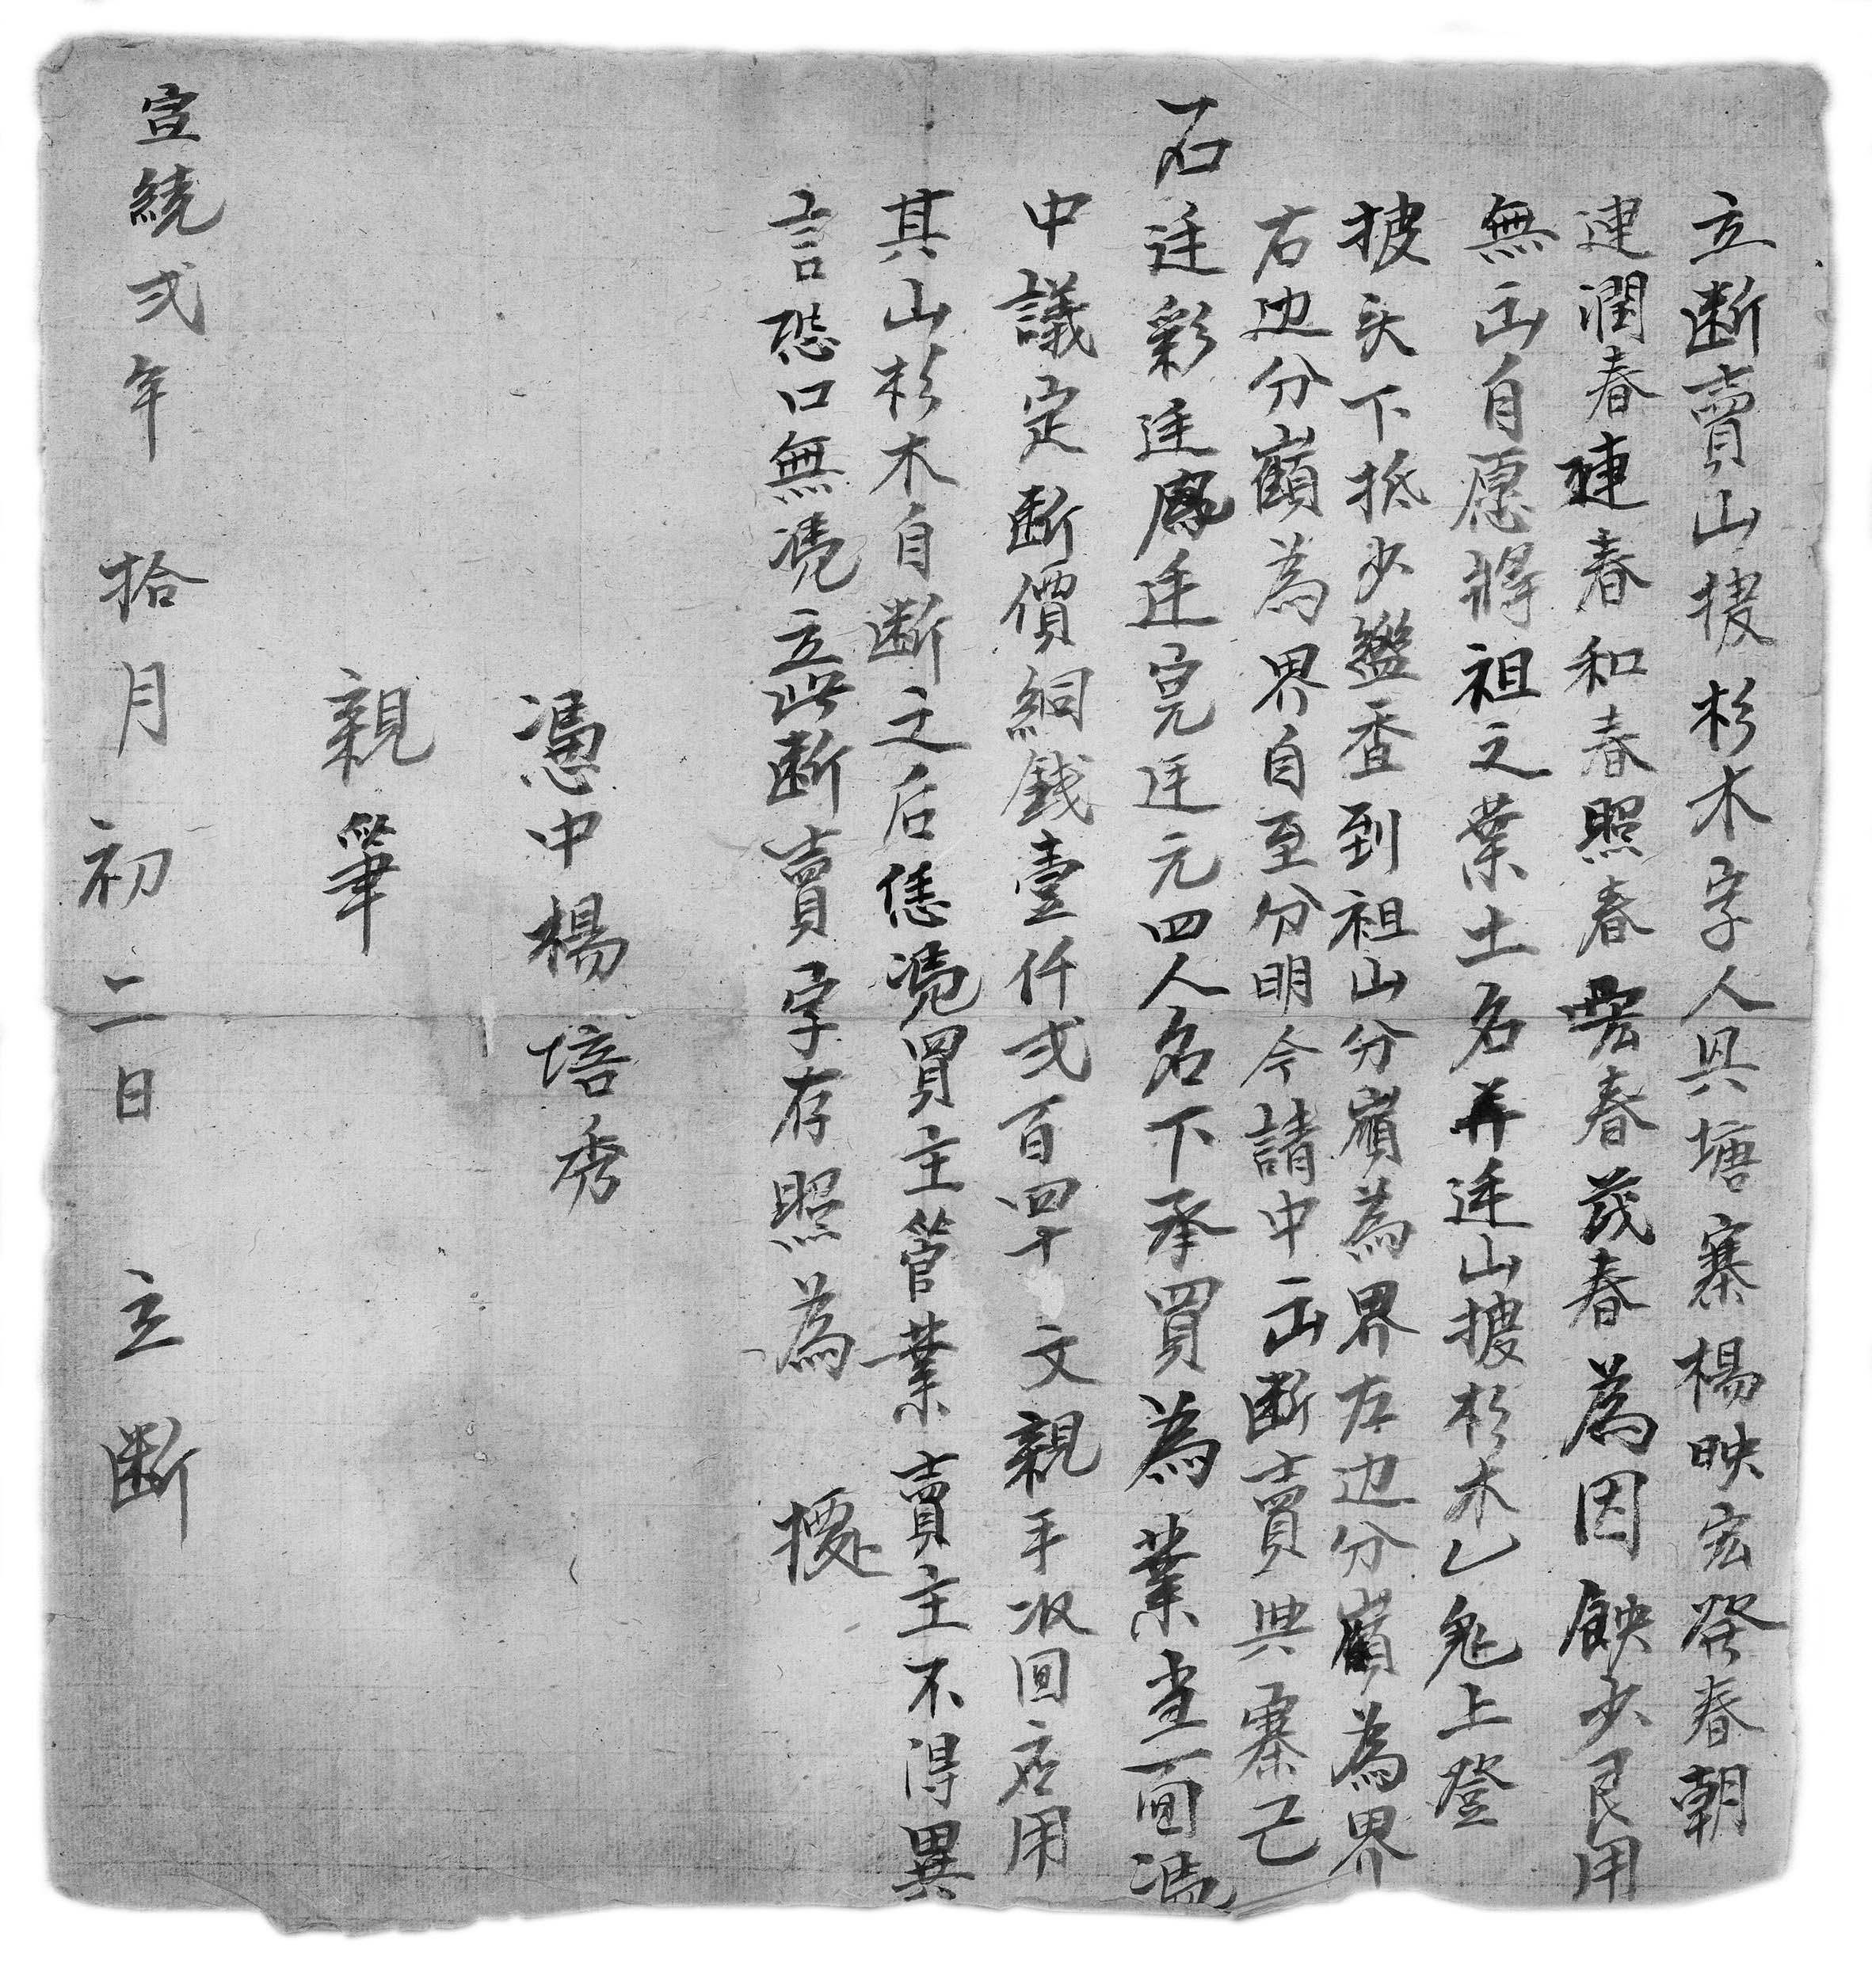 立断賣山披杉木字人具塘寨楊映宏癸春朝
連潤春連春和春照春春茂春為因缺少艮用
無出自愿將祖之業土名弄逹山披杉木乙塊上登
披头下抵少盤杢到祖山分嶺為界左边分嶺為界
右边分巔為界自至分明今請中出断賣與寨己
石廷彩廷鳳廷完廷元四人名下承買為業當面馮
中議定断價絧錢壹仟弍百四十文親手收回应用
其山杉木自断之后恁凴買主管業賣主不得異
言恐口無凴立此断賣字存照為據
憑中楊培秀
親筆
宣統弍年拾月初二日立断